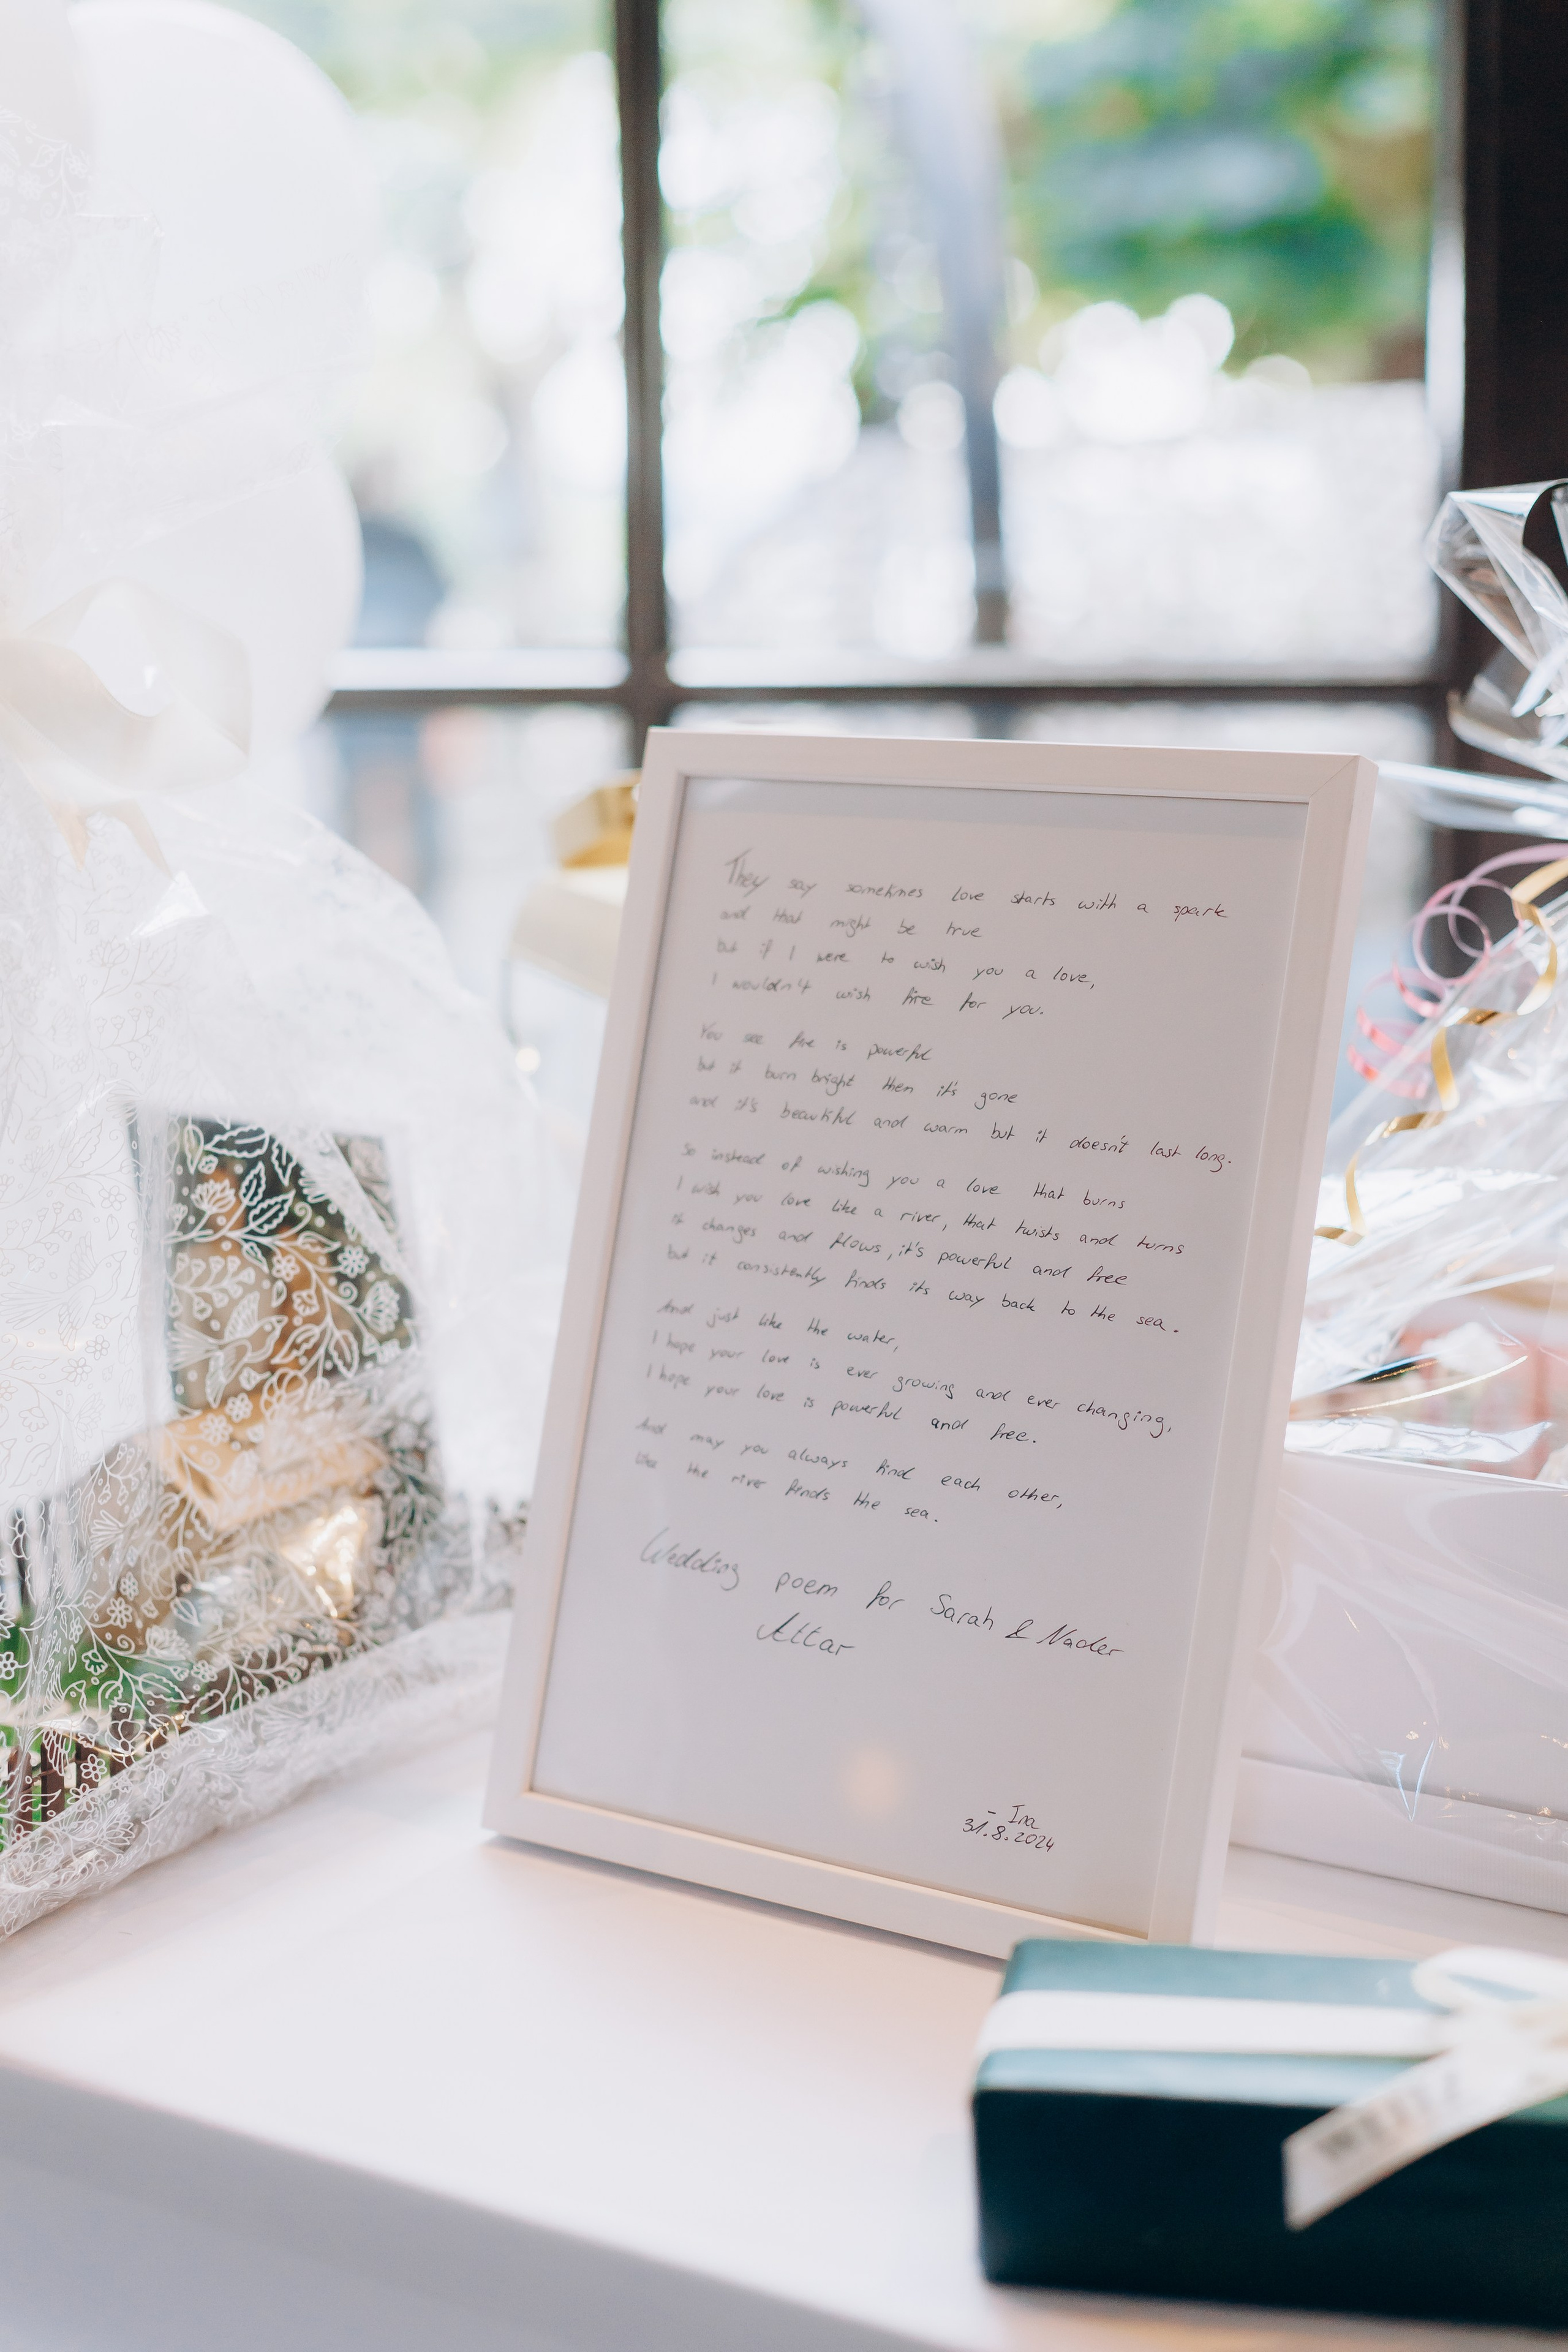 They say sometimes love starts with a spark
and that might be true
but if I were to wish you a love,
I wouldn't wish fire for you.
You see fire is powerful
but it burn bright then it's gone
and it's beautiful and warm but it doesn't last long.
So instead of wishing you a love that burns
I wish you love like a river, that twists and turns
it changes and flows, it's powerful and free
but it consistently finds its way back to the sea.
And just like the water,
I hope your love is ever growing and ever changing,
I hope your love is powerful and free.
And may you always find each other,
like the river finds the sea.
Wedding poem for Sarah & Nader
Attar
- Ina
31.8.2024